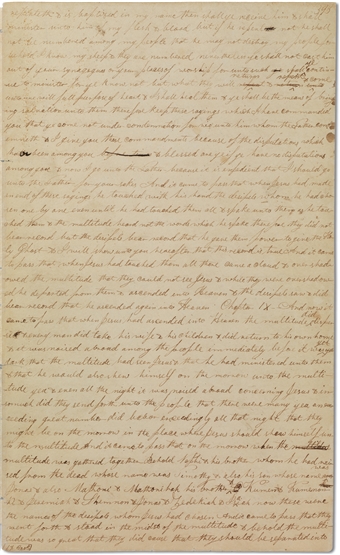 repenteth & is baptized in my name then shall ye receive him & shall
minister unto him of my flesh & blood but if he repent not he shall
not be numbered among my people that he may not destroy my people for
behold I know my sheep & they are numbered nevertheless ye shall not cast him
out of your synagogues or your places of worship for unto such shall ye contin
ue to minister for ye know not but what they will return & repent & come
unto me with full purpose of heart & I shall heal them & ye shall be the means of bring
ing salvation unto them therefore keep these sayings which I have command
you that ye come not under condemnation for wo unto him whom the father conde
mneth & I give you these commandments because of the disputations which
have been among you & blessed are ye if ye have no disputations
among you & now I go unto the father because it is expedient that I should go
unto the father for your sakes And it came to pass that when Jesus had made
an end of these sayings he touched with his hand the disciples whom he had chos
en one by one even until he had touched them all & spake unto them as he tou
ched them & the multitude heard not the words which he spake therefore they did not
bear record but the disciples bare record that he gave them power to give the
Holy Ghost & I will shew unto you hereafter that this record is true And it came
to pass that when Jesus had touched them all there came a cloud & oversha
dowed the multitude that they could not see Jesus & while they were overshadow
ed he departed from them & ascended into Heaven & the disciples saw & did
bear record that he ascended again into Heaven Chapter IX And now it
came to pass that when Jesus had ascended into Heaven the multitude did disperse
& every man did take his wife & his children & did return to his own home
& it was noised abroad among the people immediately before it was yet
dark that the multitude had seen Jesus & that he had ministered unto them
& that he would also shew himself on the morrow unto the multi
tude yea & even all the night it was noised abroad concerning Jesus & in
somuch did they send forth unto the people that there were many yea an ex
ceeding great number did labor exceedingly all that night that they
might be on the morrow in the place where Jesus should shew himself un
to the multitude And it came to pass that on the morrow when the
multitude was gathered together Behold Nephi & his brother whom he had rais
ed from the dead whose name was Timothy & also his son whose name was
Jonas & also Mathoni & Mathonihah his brother & Kumen & Kumenon
hi & Jeremiah & Shemnon & Jonas & Zedekiah & Isaiah now these were
the names of the disciples whom Jesus had chosen and it came to pass that they
went forth & stood in the midst of the multitude & behold the multi
tude was so great that they did cause that they should be separated into